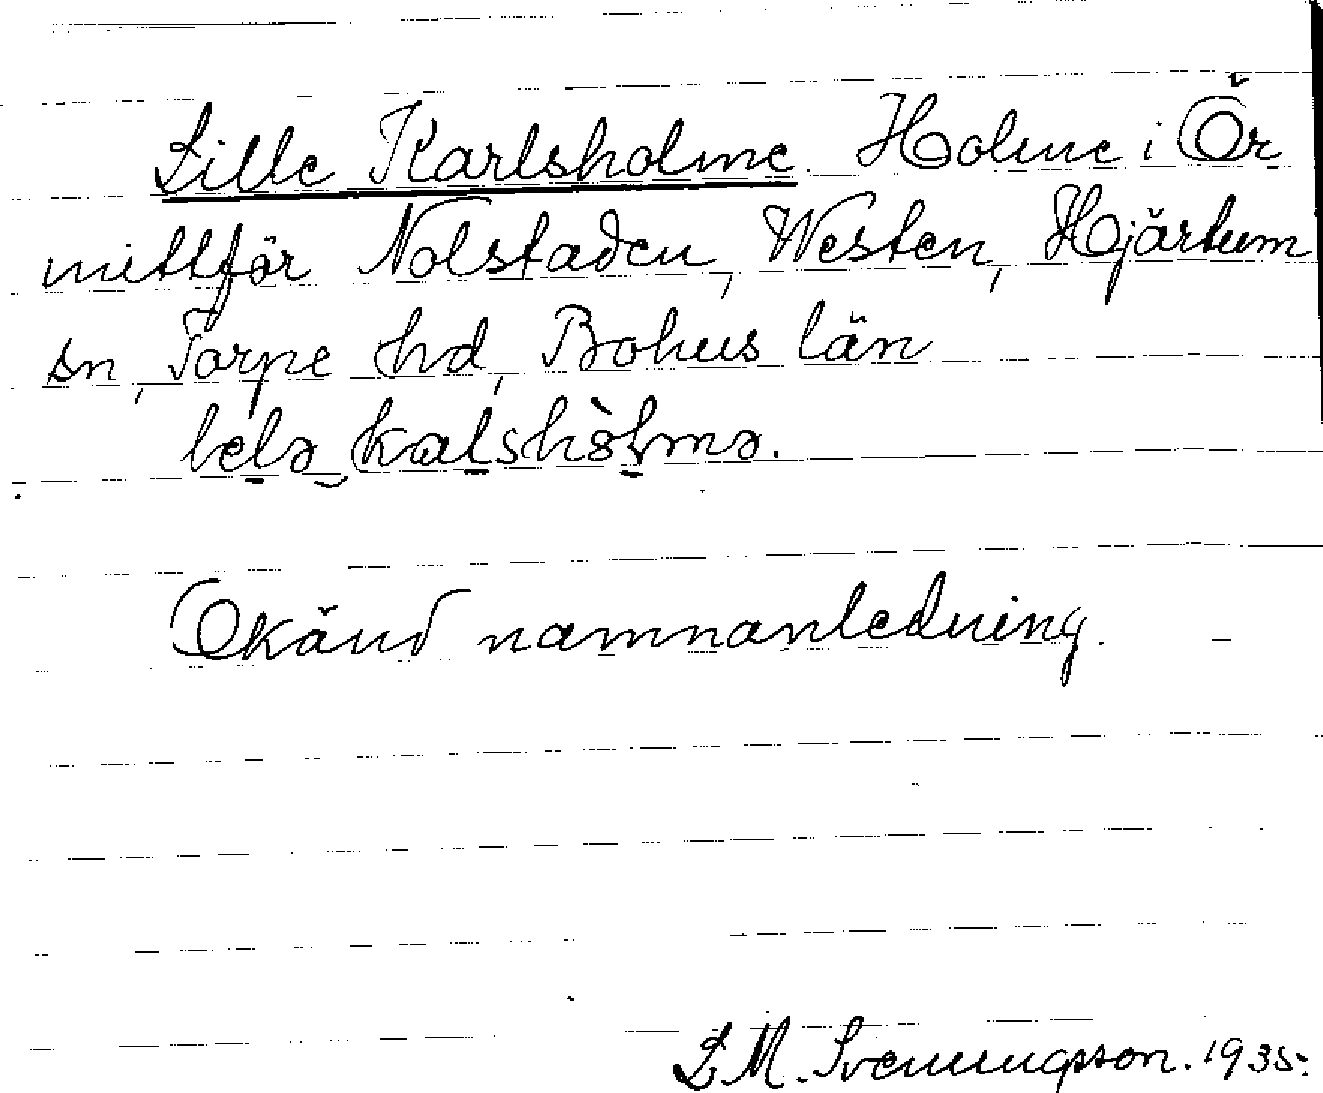 Lille Karlsholme Holme i Ör
mittför Nolstaden, Westen, Hjärtum
sn, Torpe hd, Bohus län
lelə kalshòlmə.
Okänd namnanledning.
L M. Svenningsson. 1935.